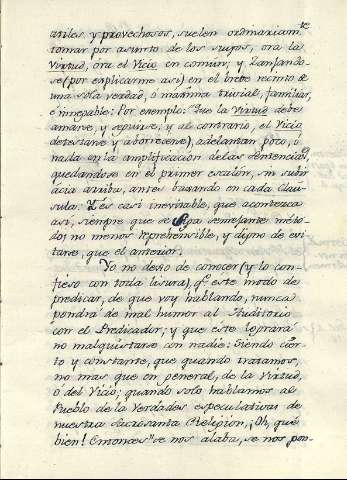 utiles y provechosos, suelen ordinariam.te
tomar por asunto de los suyos, ora la
Virtud, ora el Vicio en comun; y zanjando-
se (por explicarme asi) en el breve recinto de
una sola verdad, ó maxima trivial, familiar,
é innegable: Por exemplo: Que la Virtud debe
amarse, y seguirse; y al contrario, el Vicio
detestarse y aborrecerse), adelantan poco, ó
nada en la amplificacion de las Sentencias,
quedandose en el primer escalon, sin subir
acia arriba, antes bajando en cada Clau-
sula. Y es casi inevitable, que acontezca
asi, siempre que se siga semejante méto-
do; no menos reprehensible, y digno de evi-
tarse, que el anterior.
Yo no dejo de conocer (y lo con-
fieso con toda lisura), q.e este modo de
predicar, de que voy hablando, nunca
pondrá de mal humor al Auditorio
con el Predicador; y que este logrará
no malquistarse con nadie: Siendo cier-
to y constante, que quando tratamos,
no mas que en general, de la Virtud,
ó del Vicio; quando solo hablamos al
Pueblo de la Verdades especulativas de
nuestra Sacrosanta Religion, ¡Oh, qué
bien! Entonces se nos alaba, se nos pon-